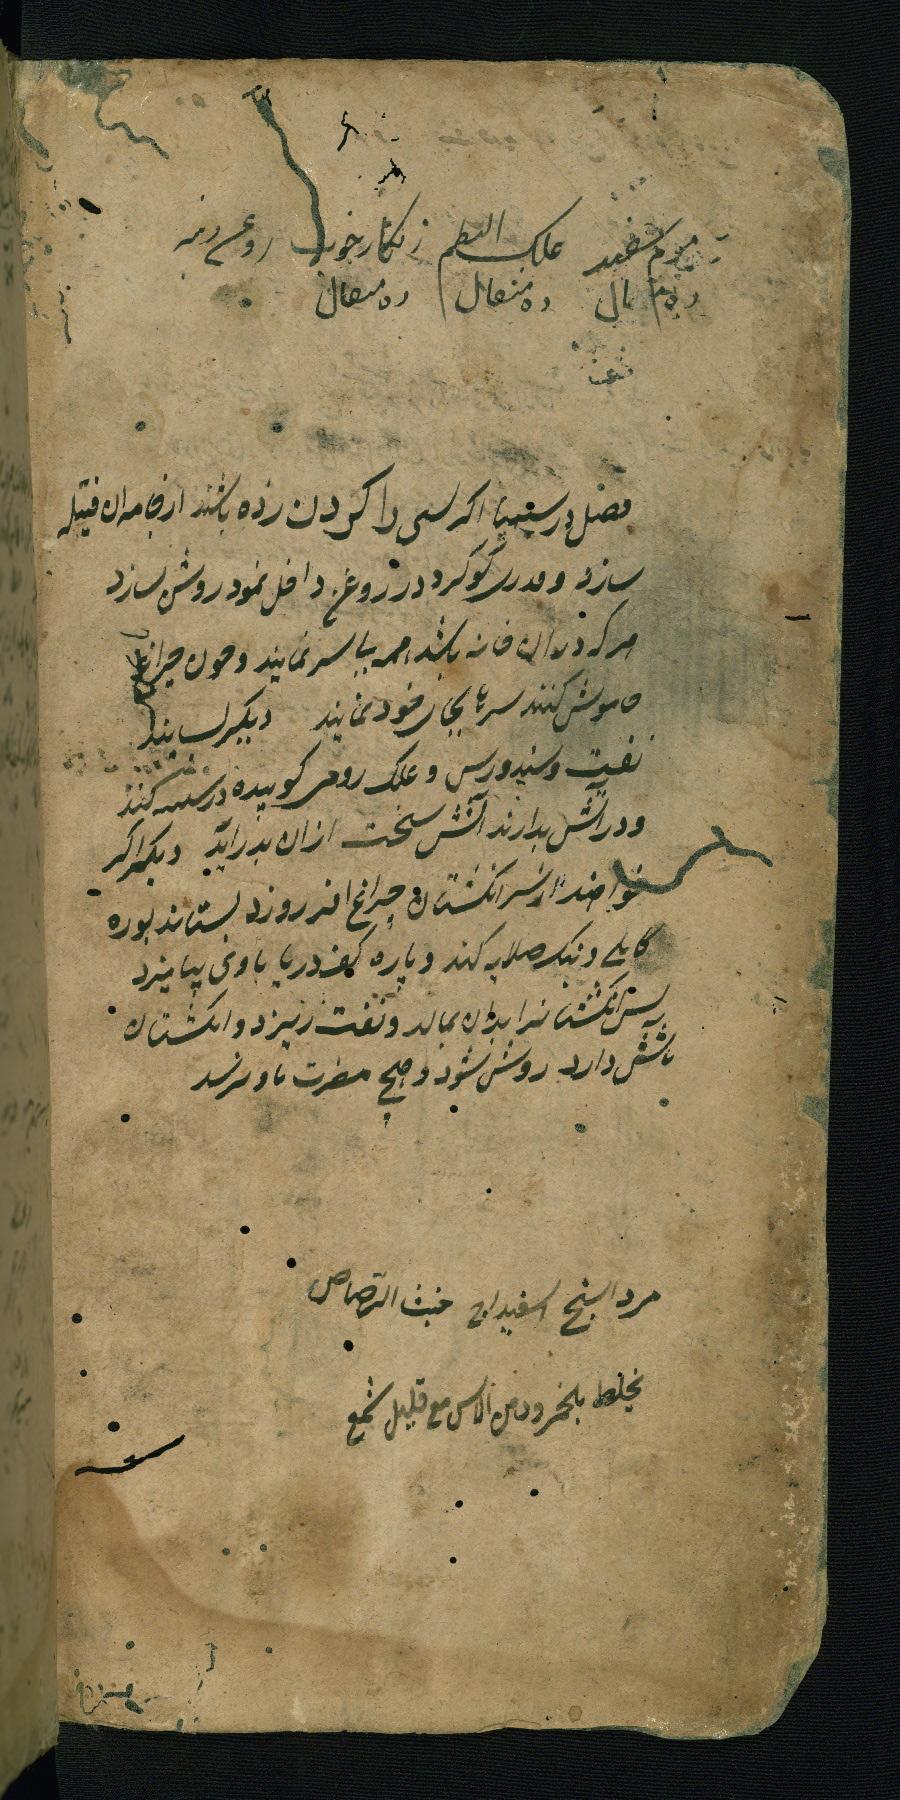 موم سفید علک البطم زنکار خوب روغن دنبه
ده مثقال ده مثقال ده مثقال
فصل در سیمیا اکر کسی را کردن زده باشند از جامه ان فتیله
سازد و قدری کوکرد در روغن داخل نمود روشن سازد
هرکه در ان خانه باشد همه بی سر نمایند و چون چراغ
خاموش کنند سرها بجای خود نمایند دیکر بستانند
نفت و سندروس و علک رومی کوبیده در کنند
و در آتش بدارند آتش سخت از ان بدر آید دیکر اکر
خواهند از سر انکشتان چراغ افروزد بستاند بوره
و نیک صلایه کند و پاره کف دریا با وی بیامیزد
پس انکشتانرا بدان بمالد و نفت ریزد و انکشتان
باتش دارد روشن شود و هیچ مضرت باو نرسد
مرداسنج اسفیداج خبث الرصاص
یخلط بالخمر و دهن الاس مع قلیل شمع